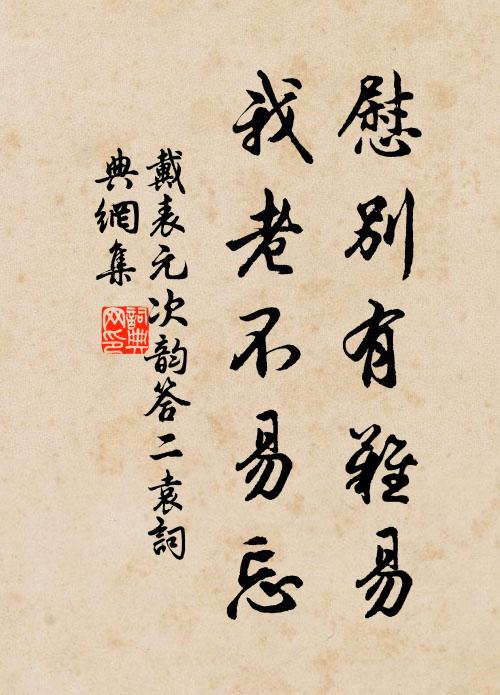 慰別有難易
我老不易忘
戴表元次韵答二袁詞
典網集
詞典网印